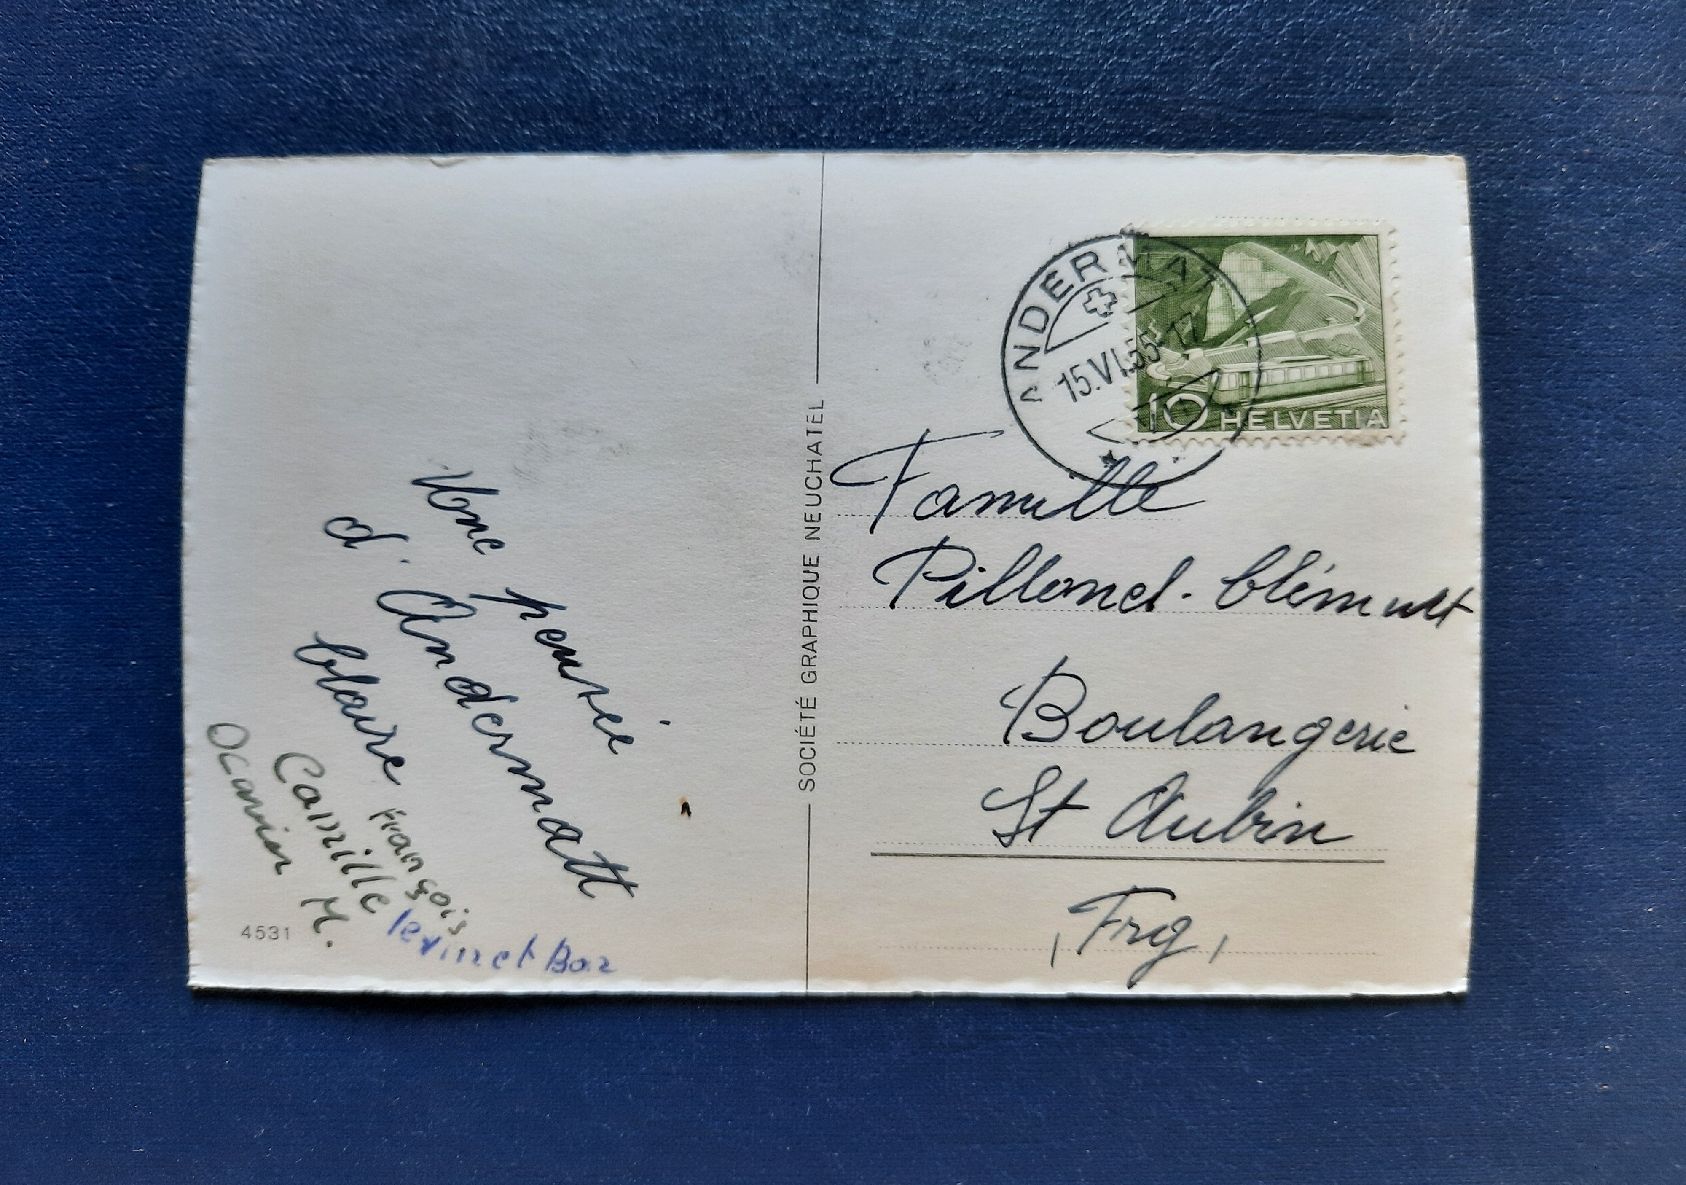 Une pensée
d'Andermatt
Claire
François
Camille
M.
4531
SOCIÉTÉ GRAPHIQUE NEUCHATEL
ANDERMATT
15.VI.55-17
10 HELVETIA
Famille
Pillonel-Clément
Boulangerie
St Aubin
(Frg)